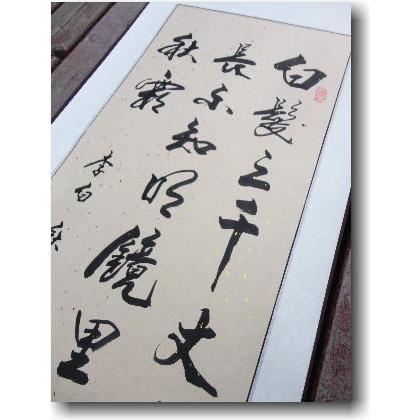 白髮三千丈
長不知明鏡里
秋霜
李白